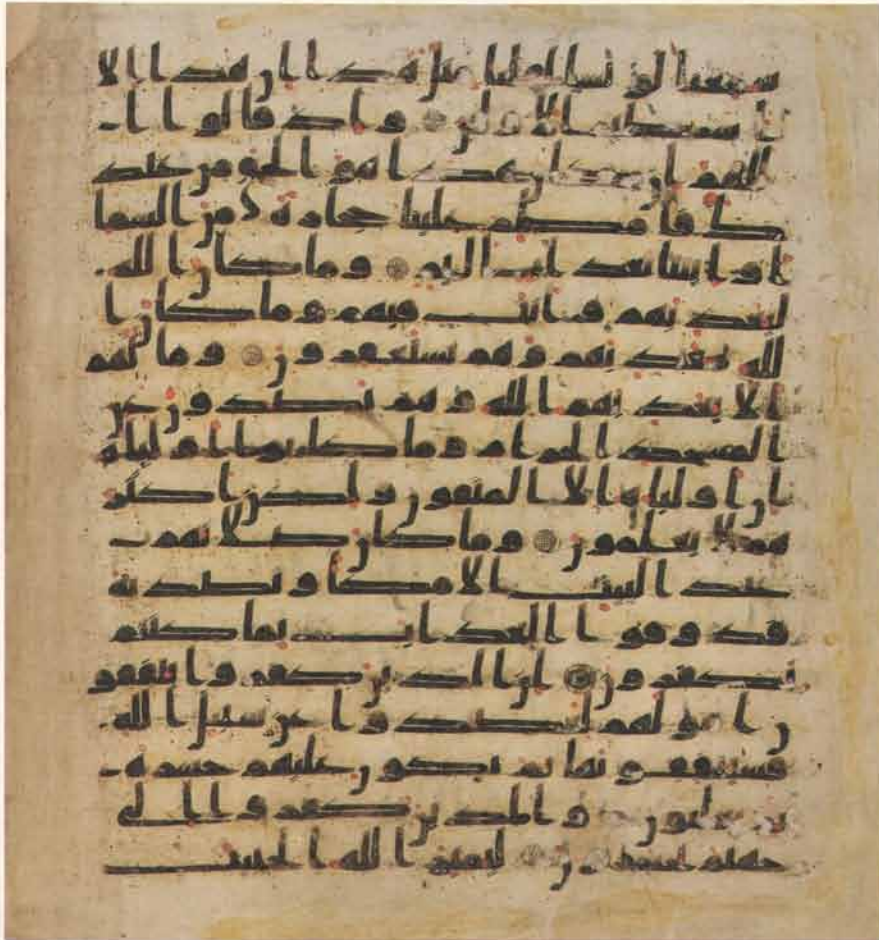 سمعنا لو نشا لقلنا مثل هذا ان هذا الا
اسطير الاولين واذ قالوا ا
للهم ان كان هذا هو الحق من عند
ك فامطر علينا حجارة من السما
او ايتنا بعذاب اليم وما كان الله
ليعذبهم وانت فيهم وما كان ا
لله معذبهم وهم يستغفرون وما لهم
الا يعذبهم الله وهم يصدون عن
المسجد الحرام وما كانوا اولياه
ان اولياوه الا المتقون ولكن اكثر
هم لا يعلمون وما كان صلاتهم
عند البيت الا مكا وتصدية
فذوقوا العذاب بما كنتم
تكفرون ان الذين كفروا ينفقو
ن امولهم ليصدوا عن سبيل الله
فسينفقونها ثم تكون عليهم حسرة
ثم يغلبون والذين كفروا الى
جهنم يحشرون ليميز الله الخبيث